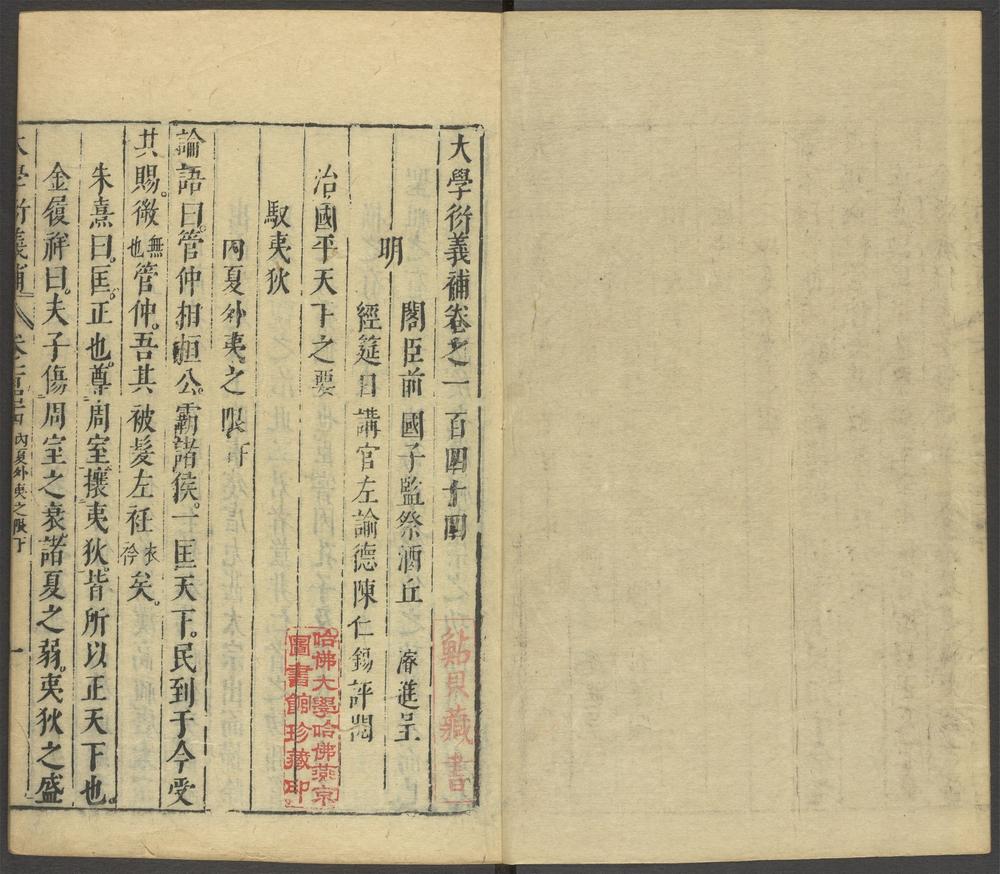 大學衍義補卷之一百四十四
明
閣臣前國子監祭酒丘濬進呈
經筵日講官左諭德陳仁錫評閱
治國平天下之要
馭夷狄
內夏外夷之限上
論語曰管仲相桓公霸諸侯一匡天下民到于今受
其賜。微無也管仲。吾其被髮左衽衣衿矣。
朱熹曰。匡。正也。尊周室攘夷狄。皆所以正天下也。
金履祥曰。夫子傷周室之衰。諸夏之弱。夷狄之盛
大學衍義補 卷 內夏外夷之限 一
藏書
哈佛大學哈佛燕京
圖書館珍藏印